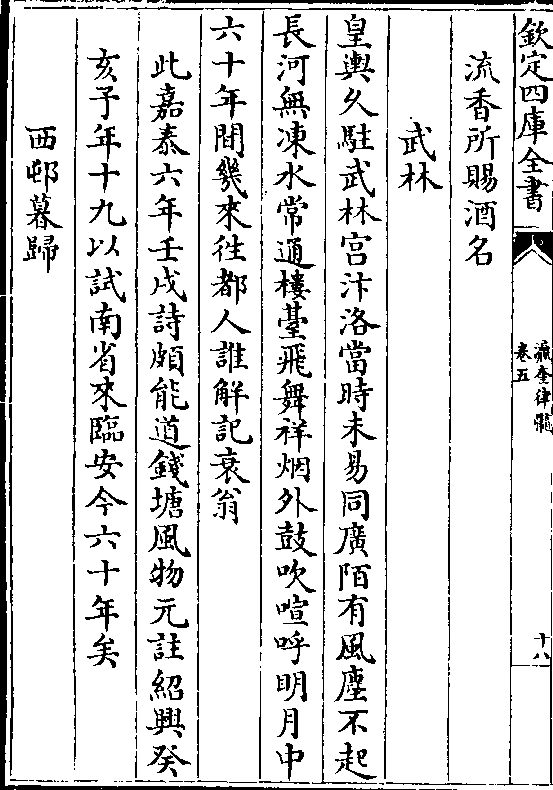 欽定四庫全書
瀛奎律髓
卷五
十八
流香所賜酒名
武林
皇輿久駐武林宮汴洛當時未易同廣陌有風塵不起
長河無凍水常通樓臺飛舞祥烟外鼓吹喧呼明月中
六十年間幾來徃都人誰解記衰翁
此嘉泰六年壬戌詩頗能道錢塘風物元註紹興癸
亥子年十九以試南省來臨安今六十年矣
西邨暮歸